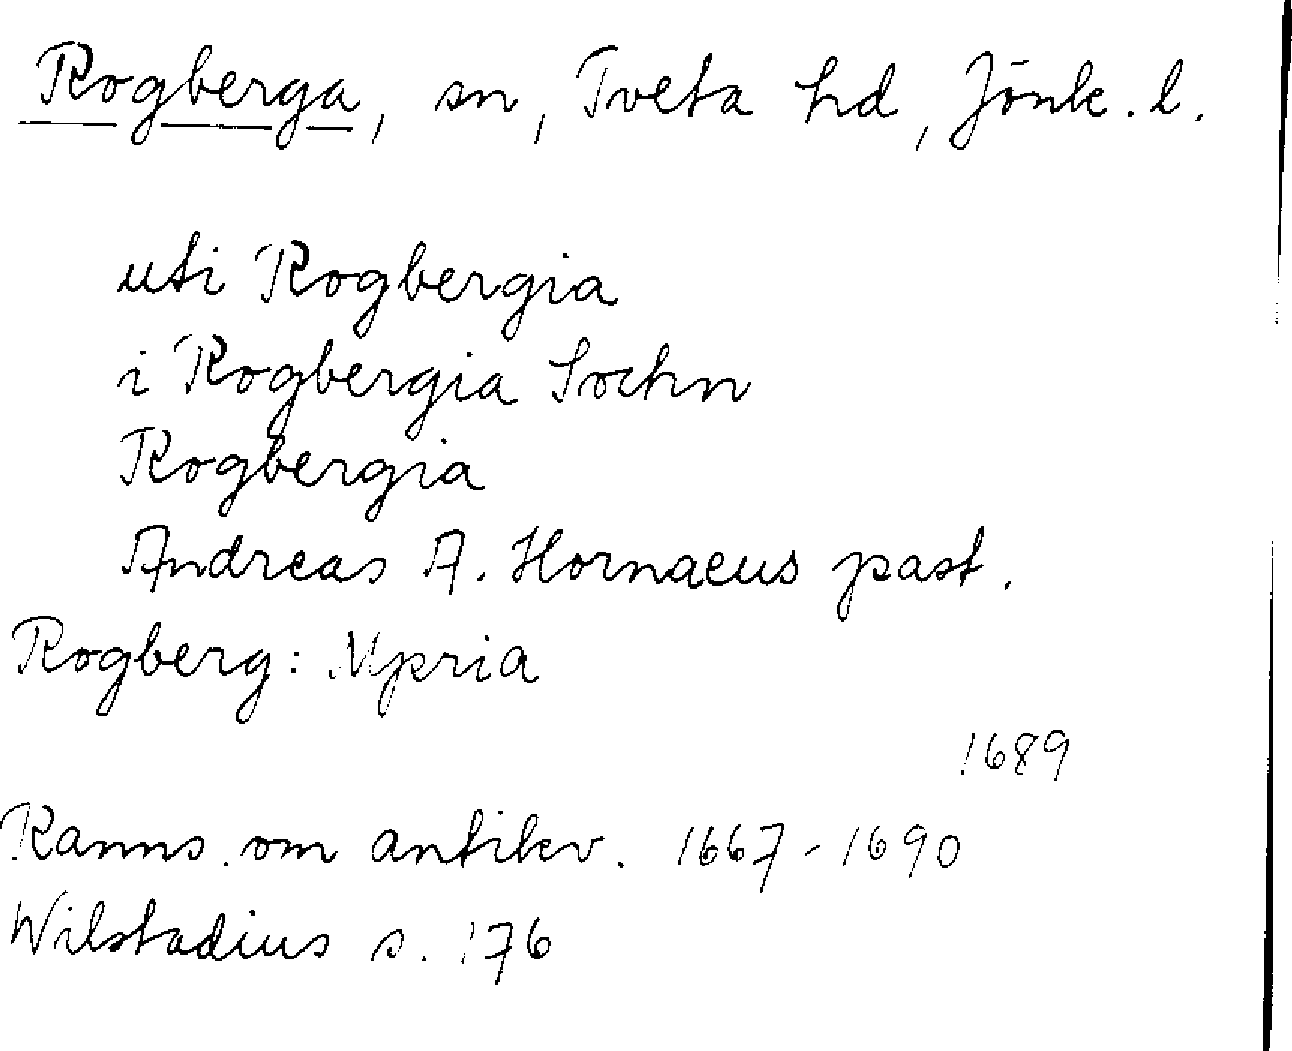 Rogberga, sn, Tveta hd, Jönk. l.
uti Rogbergia
i Rogbergia Sochn
Rogbergia
Andreas A. Hornaeus past.
Rogberg: Nyeria
1689
Ranns. om antikv. 1667-1690
Wilstadius s. 176